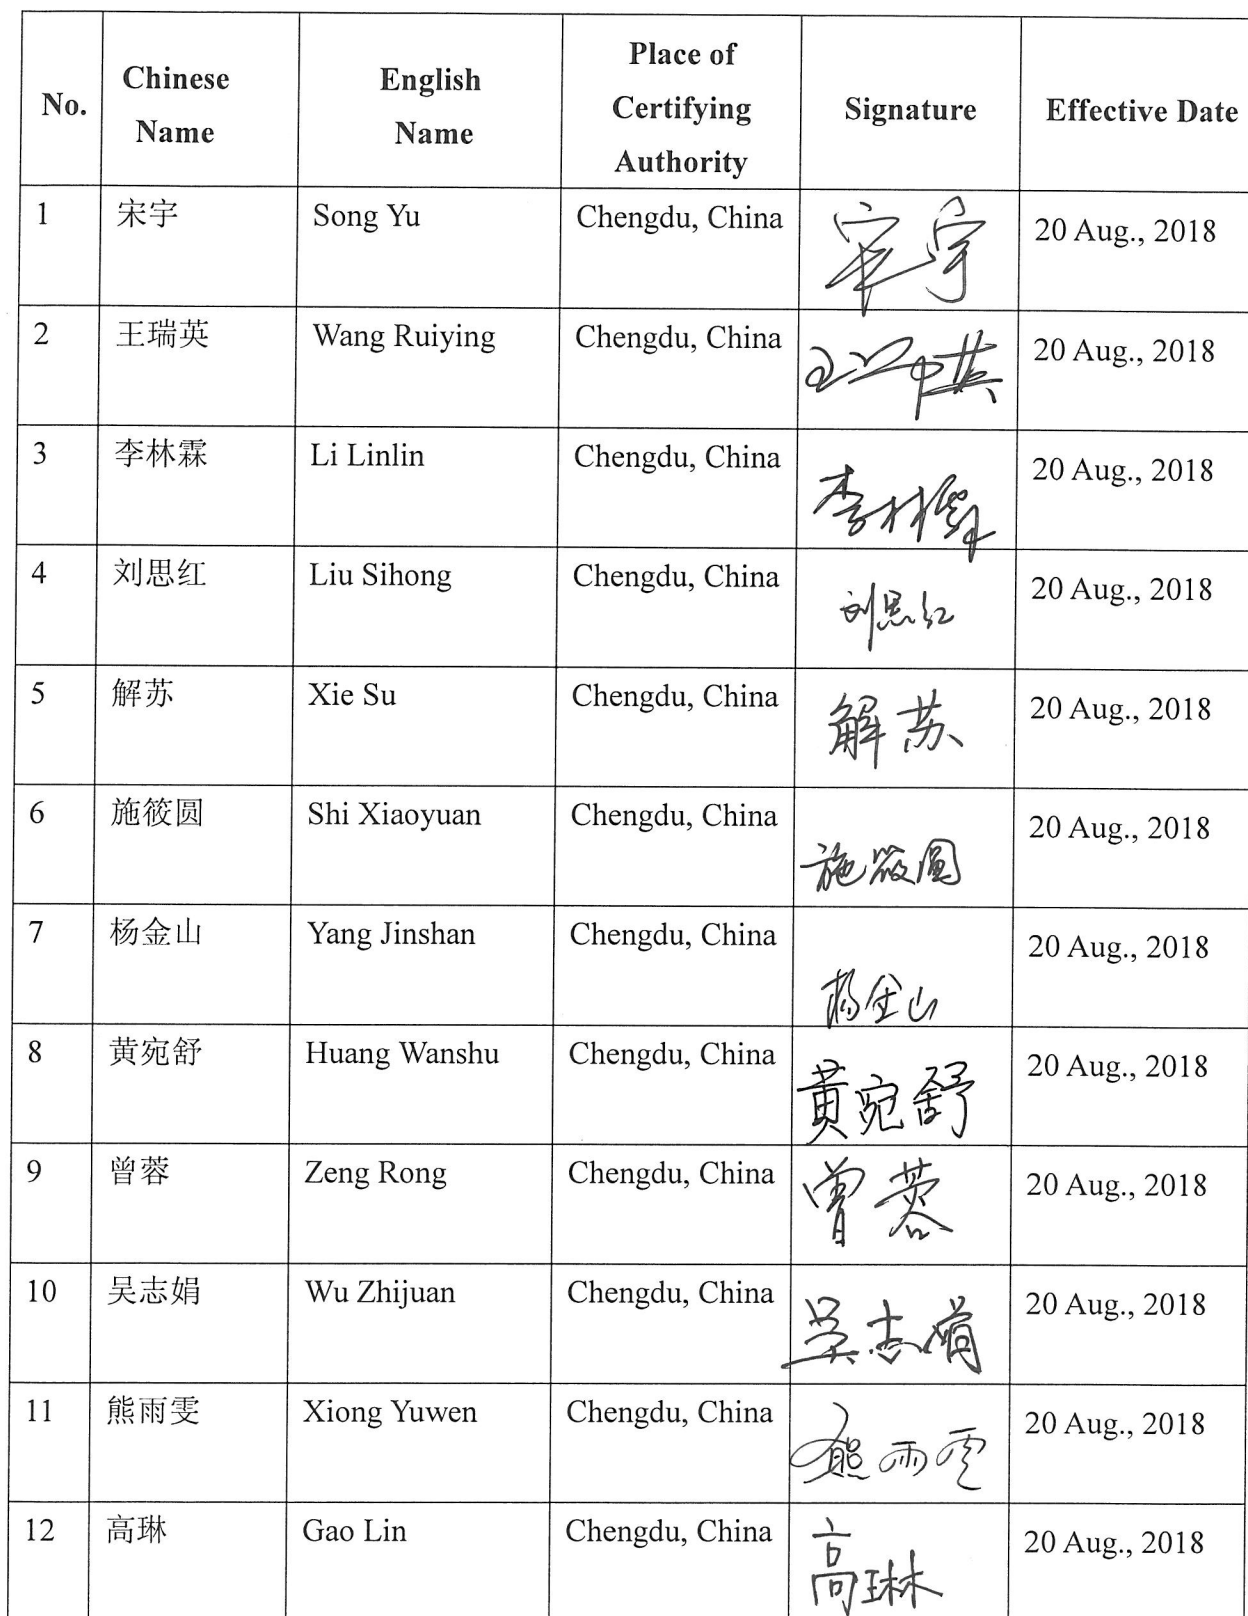 No.
Chinese
Name
English
Name
Place of
Certifying
Authority
Signature
Effective Date
1
宋宇
Song Yu
Chengdu, China
宋宇
20 Aug., 2018
2
王瑞英
Wang Ruiying
Chengdu, China
王瑞英
20 Aug., 2018
3
李林霖
Li Linlin
Chengdu, China
李林霖
20 Aug., 2018
4
刘思红
Liu Sihong
Chengdu, China
刘思红
20 Aug., 2018
5
解苏
Xie Su
Chengdu, China
解苏
20 Aug., 2018
6
施筱圆
Shi Xiaoyuan
Chengdu, China
施筱圆
20 Aug., 2018
7
杨金山
Yang Jinshan
Chengdu, China
杨金山
20 Aug., 2018
8
黄宛舒
Huang Wanshu
Chengdu, China
黄宛舒
20 Aug., 2018
9
曾蓉
Zeng Rong
Chengdu, China
曾蓉
20 Aug., 2018
10
吴志娟
Wu Zhijuan
Chengdu, China
吴志娟
20 Aug., 2018
11
熊雨雯
Xiong Yuwen
Chengdu, China
熊雨雯
20 Aug., 2018
12
高琳
Gao Lin
Chengdu, China
高琳
20 Aug., 2018